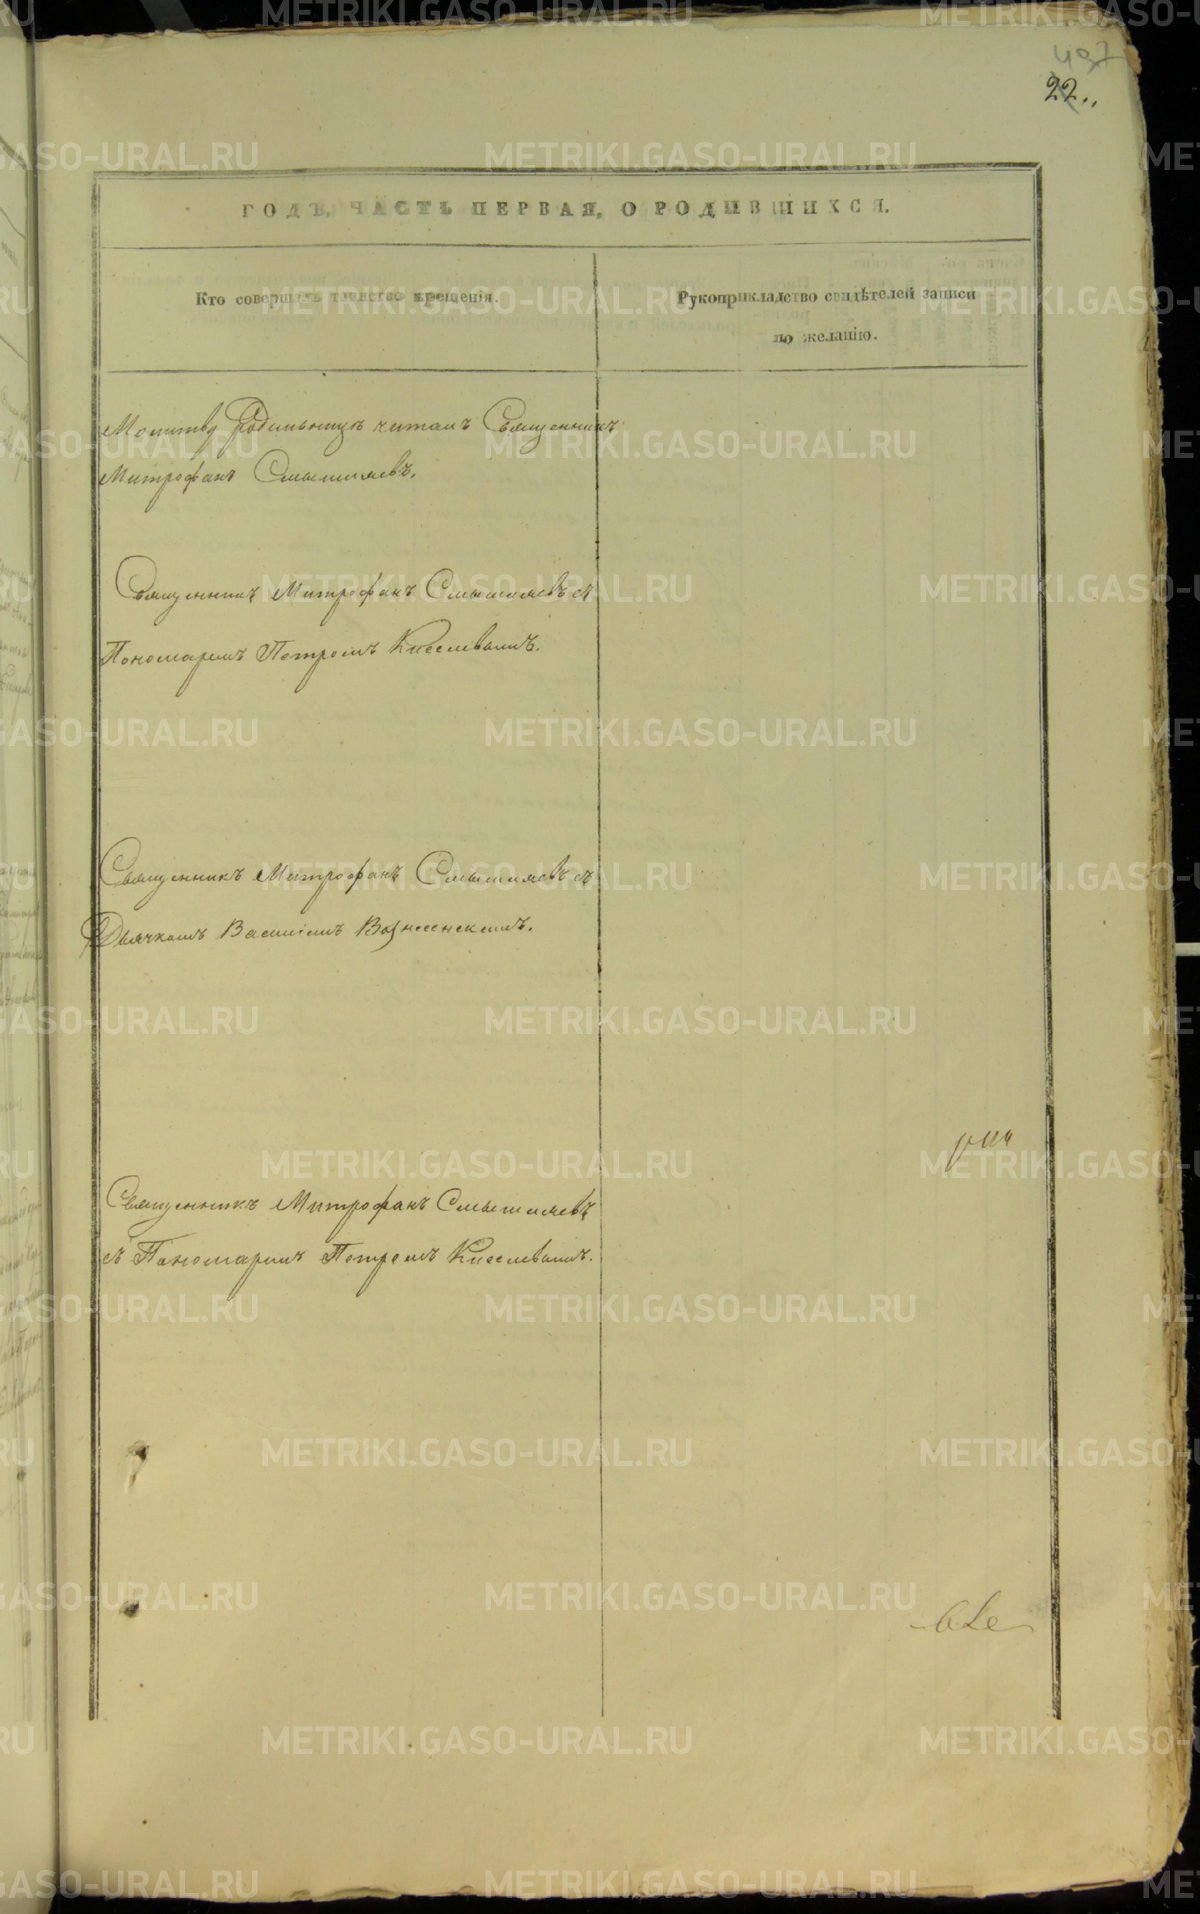 497
22..
ГОДЪ, ЧАСТЬ ПЕРВАЯ, О РОДИВШИХСЯ.
Кто совершалъ таинство крещенія.
Рукоприкладство свидѣтелей записи
по желанію.
Молитву Родильницѣ читалъ Священникъ
Митрофанъ Смышляевъ.
Священникъ Митрофанъ Смышляевъ съ
Пономаремъ Петромъ Киселевымъ.
Священникъ Митрофанъ Смышляевъ съ
Дьячкомъ Василіемъ Вознесенскимъ.
Священникъ Митрофанъ Смышляевъ
съ Пономаремъ Петромъ Киселевымъ.
METRIKI.GASO-URAL.RU